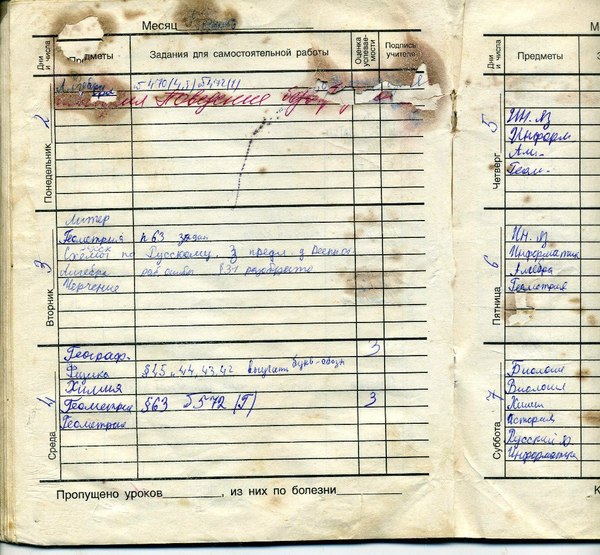 Месяц
Дни и числа
Предметы
Задания для самостоятельной работы
Оценка успевае-мости
Подпись учителя
Понедельник
2
Поведение
Вторник
3
Литер
Геометрия п 63 задан
по Русскому. 3 предл
Алгебра
Черчение
Среда
4
Географ. 3
Физика §45, 44, 43, 42 выучить букв-обозн
Химия
Геометрия §63 572 (Г) 3
Геометрия
Пропущено уроков, из них по болезни
Дни и числа
Предметы
Четверг
5
Ин. яз
Информ
Ал-
Геом-
Пятница
6
Ин. Яз
Информатика
Алгебра
Геометрия
Суббота
7
Биология
Биология
Химия
История
Русский я
Информатика
К